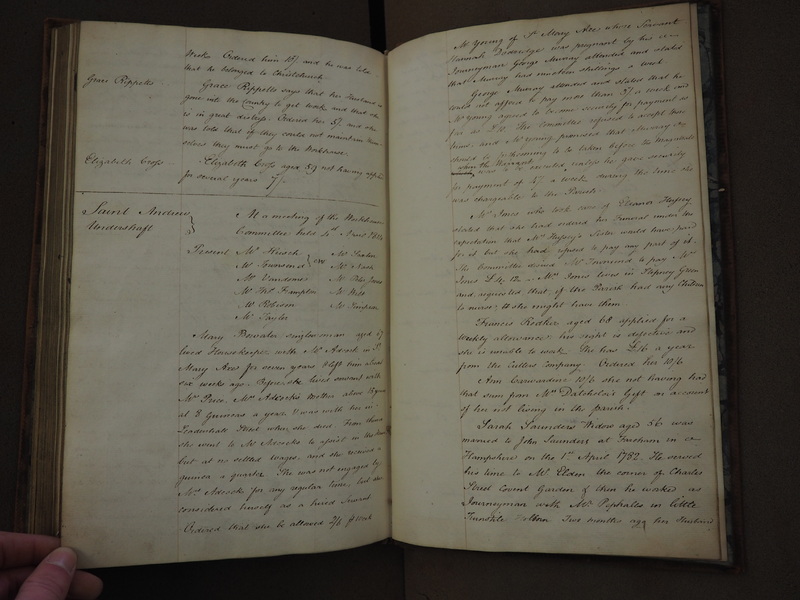 weeks Ordered him 10/ and he was told
that he belonged to Christchurch
Grace Rippelts
Grace Rippelts says that her Husband is
gone into the Country to get work and that she
is in great distress. Ordered her 5/ and she
was told that if they could not maintain them
selves they must go to the Workhouse
Elizabeth Cross
Elizabeth Cross aged 59 not having applied
for several years 7/
Saint Andrew
Undershaft
At a meeting of the Workhouse
Committee held
Present Mr Hirsch Mr
Mr Townsend Mr Nash
Mr Vandome Mr
Mr Thos Frampton Mr Witt
Mr Robson Mr Simpson
Mr Taylor
Mary Brewster singlewoman aged
lived Housekeeper with Mr Adcock in St
Mary Axe for seven years & left him about
six weeks ago. Before she lived servant with
Mrs Price, Mr Adcock's Mother above years
at 8 Guineas a year & was with her in
Leadenhall Street when she died. From thence
she went to Mr Adcocks to assist in the
but at no settled wages, and she received a
guinea a quarter. She was not engaged by
Mr Adcock for any regular time, but she
considered herself as a hired Servant
Ordered that she be allowed 2/6 Week
Mr Young of St Mary Axe whose Servant
Hannah was pregnant by his
Journeyman George Murray attended and stated
that Murray had nineteen shillings a week
George Murray attended and stated that he
could not afford to pay more than 3/ a week and
Mr Young agreed to become security for payment as
far as The Committee refused to accept these
terms, and Mr Young promised that Murray
should be forthcoming to be taken before the Magistrate
when the Warrant
was to be executed unless he gave security
for payment of a week during the time she
was chargeable to the Parish.
Mr Jones who took care of Eleanor
stated that she had ordered her Funeral under the
expectation that Mr Sister would have paid
for it but she had refused to pay any part of it.
The Committee desired Mr Townsend to pay Mr
Jones £4.12 Mr Jones lives in Stepney Green
and requested that if the Parish had any Children
to nurse, she might have them
Francis aged 68 applied for a
Weekly allowance, his sight is defective and
she is unable to work. She has £16 a year
from the Cutlers Company. Ordered her 10/6
Ann Carwardine 10/6 she not having had
that sum from Mrs Datchelor's Gift on account
of her not living in the parish.
Sarah Saunders Widow aged 56 was
married to John Saunders at in
Hampshire on the 1st April 1782. He served
his time to Mr Elden the corner of Charles
Street Covent Garden & then he worked as
Journeyman with Mr in little
Turnstile Holborn Two months ago her Husband